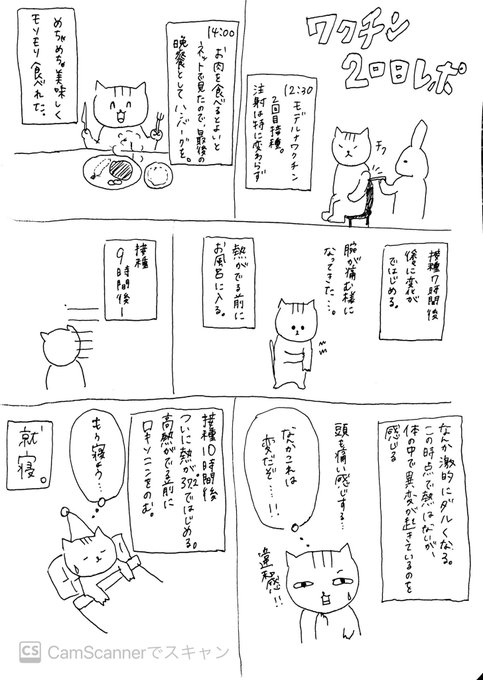 ワクチン
2回目レポ
12:30
モデルナワクチン
2回目接種。
注射は特に変わらず
チク
14:00
お肉を食べるとよいと
ネットで見たので、最後の
晩餐としてハンバーグを。
めちゃめちゃ美味しく
モリモリ食べれた。
接種7時間後
後に変化が
ではじめる。
腕が痛む様に
なってきた…。
熱がでる前に
お風呂に入る。
接種
9時間後ー
なんか激的にダルくなる。
この時点で熱はないが、
体の中で異変が起きているのを
感じる
頭も痛い感じする…
なんかこれは
変だぞ…!!
違和感!!
接種10時間後
ついに熱が37.2ではじめる。
高熱がでる前に
ロキソニンをのむ。
もう寝よう…
就寝。
CS CamScannerでスキャン